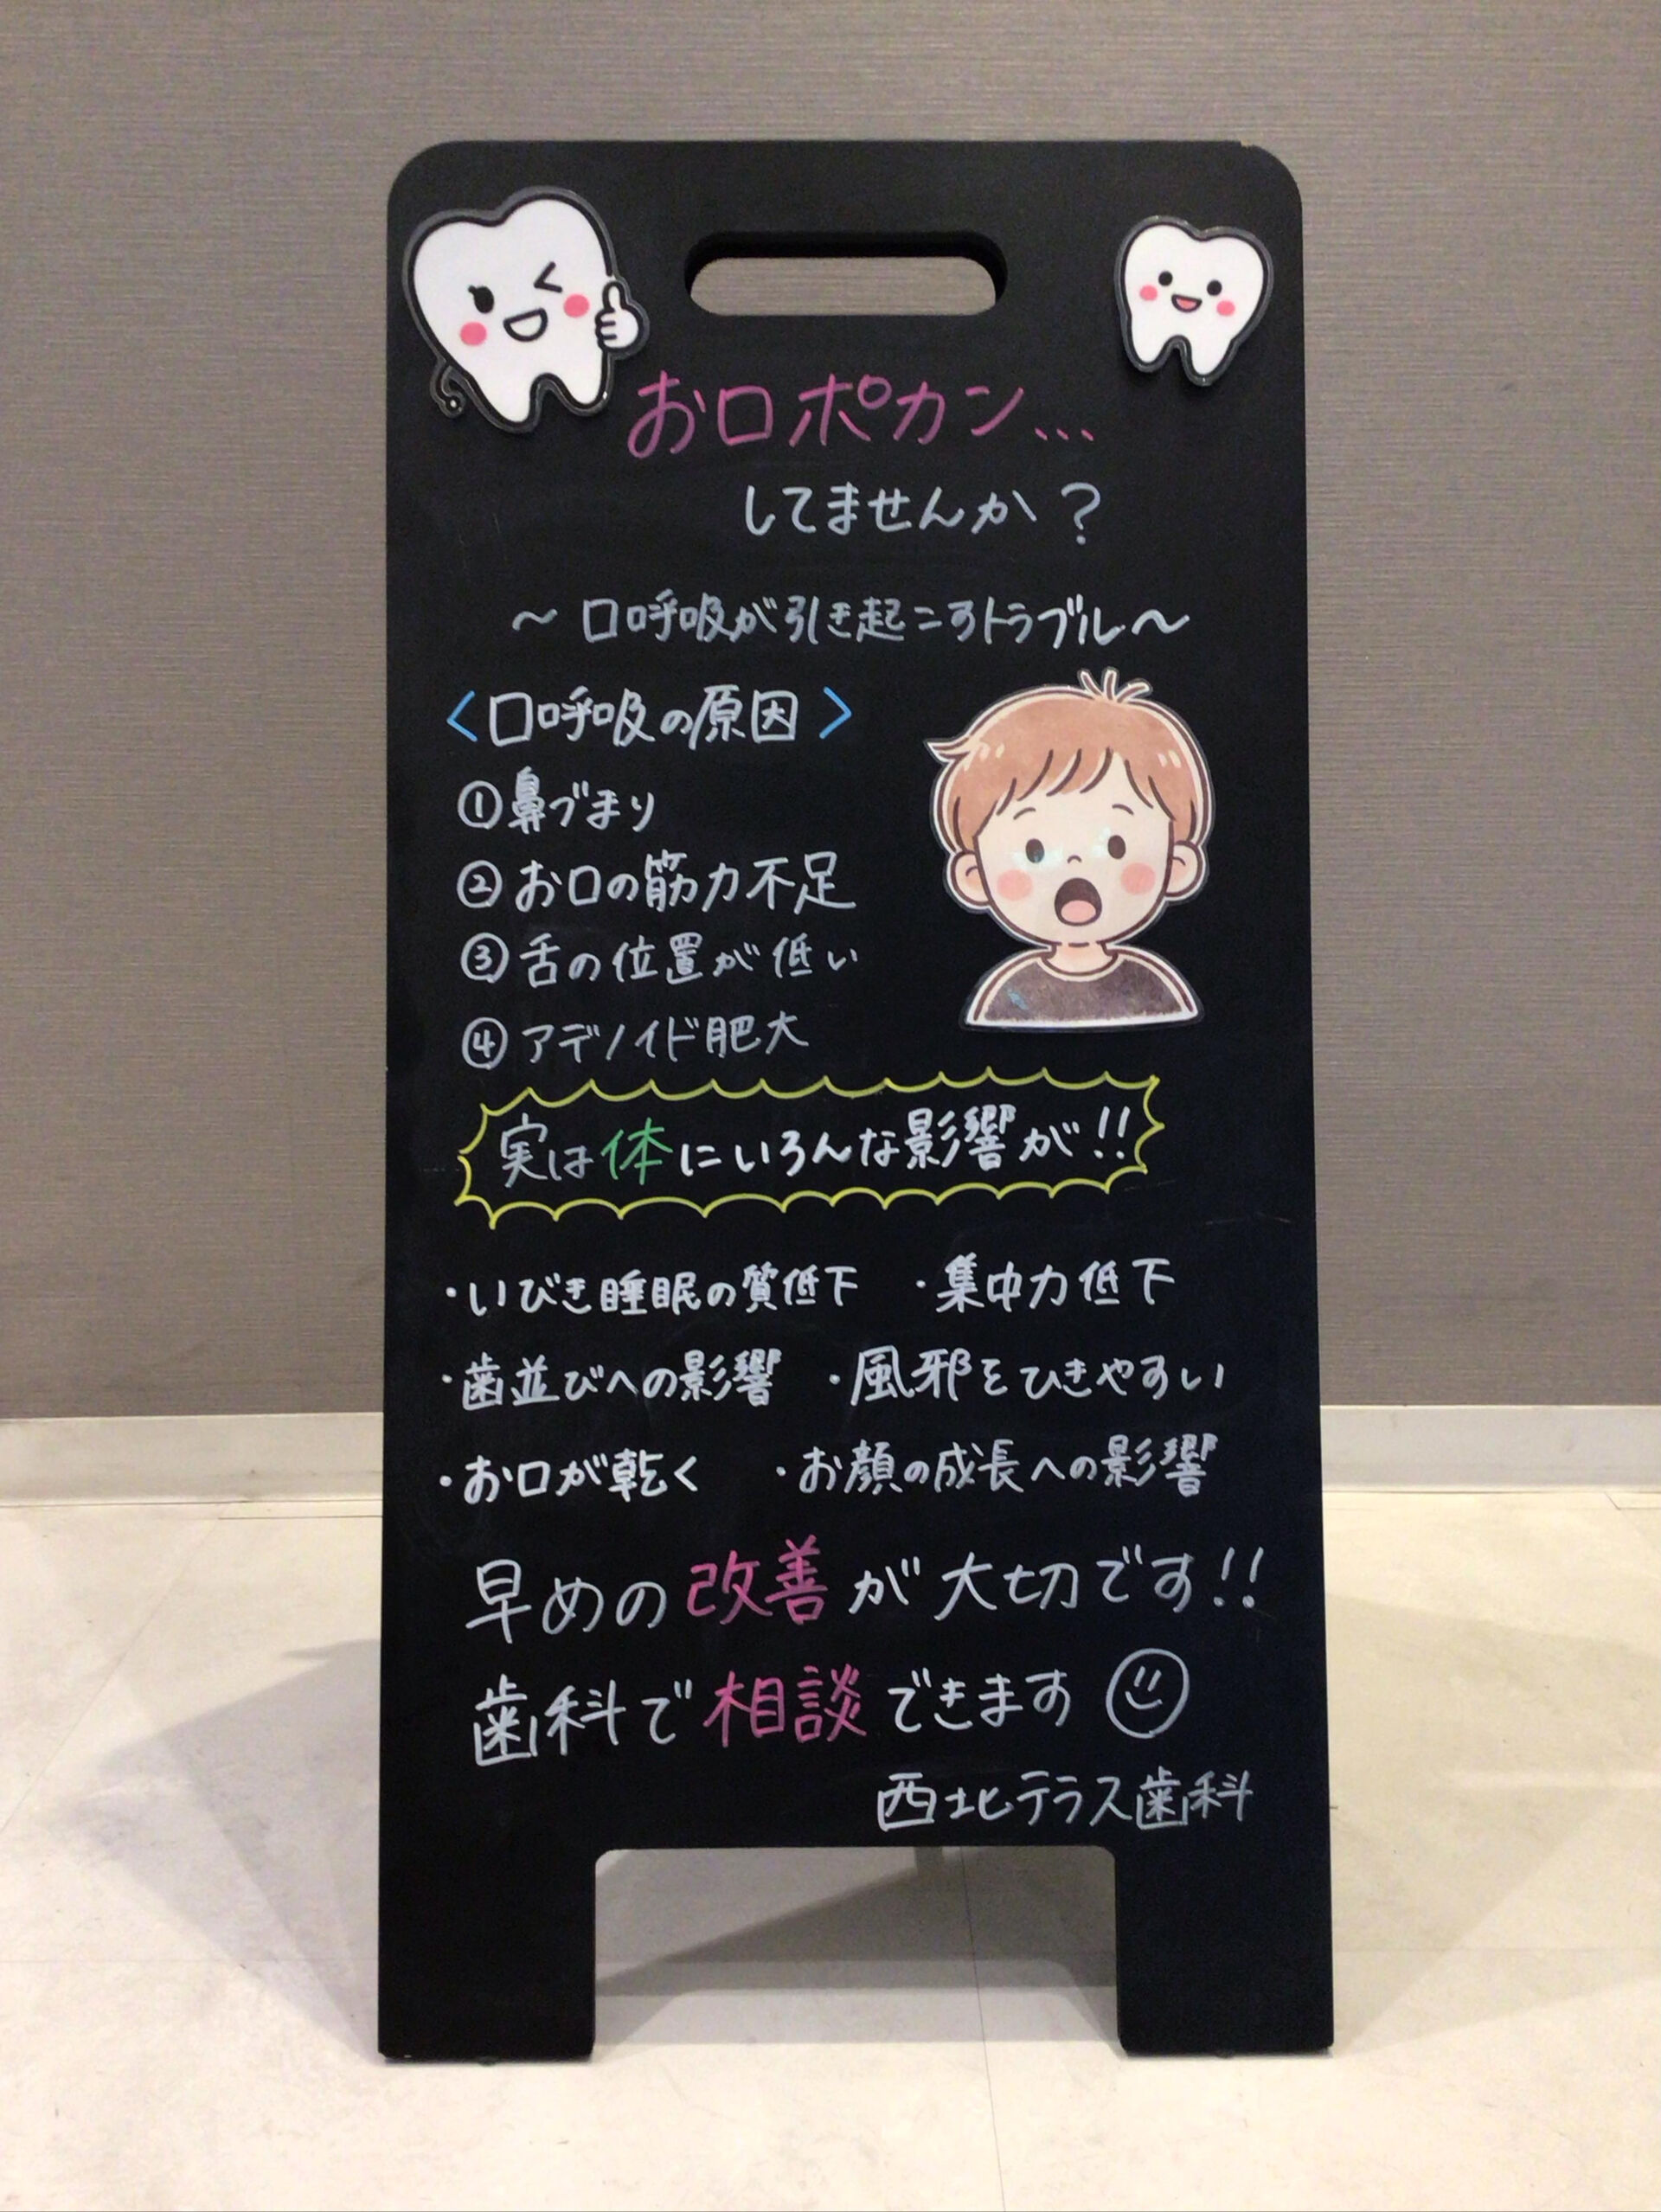 お口ポカン...
してませんか？
～口呼吸が引き起こすトラブル～
〈口呼吸の原因〉
①鼻づまり
②お口の筋力不足
③舌の位置が低い
④アデノイド肥大
実は体にいろんな影響が!!
・いびき睡眠の質低下 ・集中力低下
・歯並びへの影響 ・風邪をひきやすい
・お口が乾く ・お顔の成長への影響
早めの改善が大切です!!
歯科で相談できます
西北テラス歯科